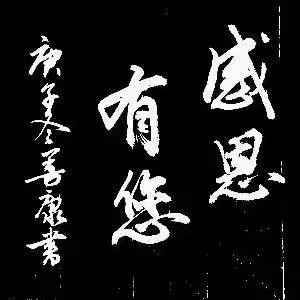 感恩
有您
庚子冬善康書